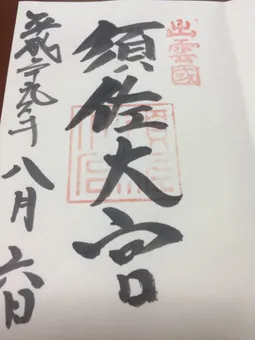 出雲國
須佐大宮
平成二十九年八月六日